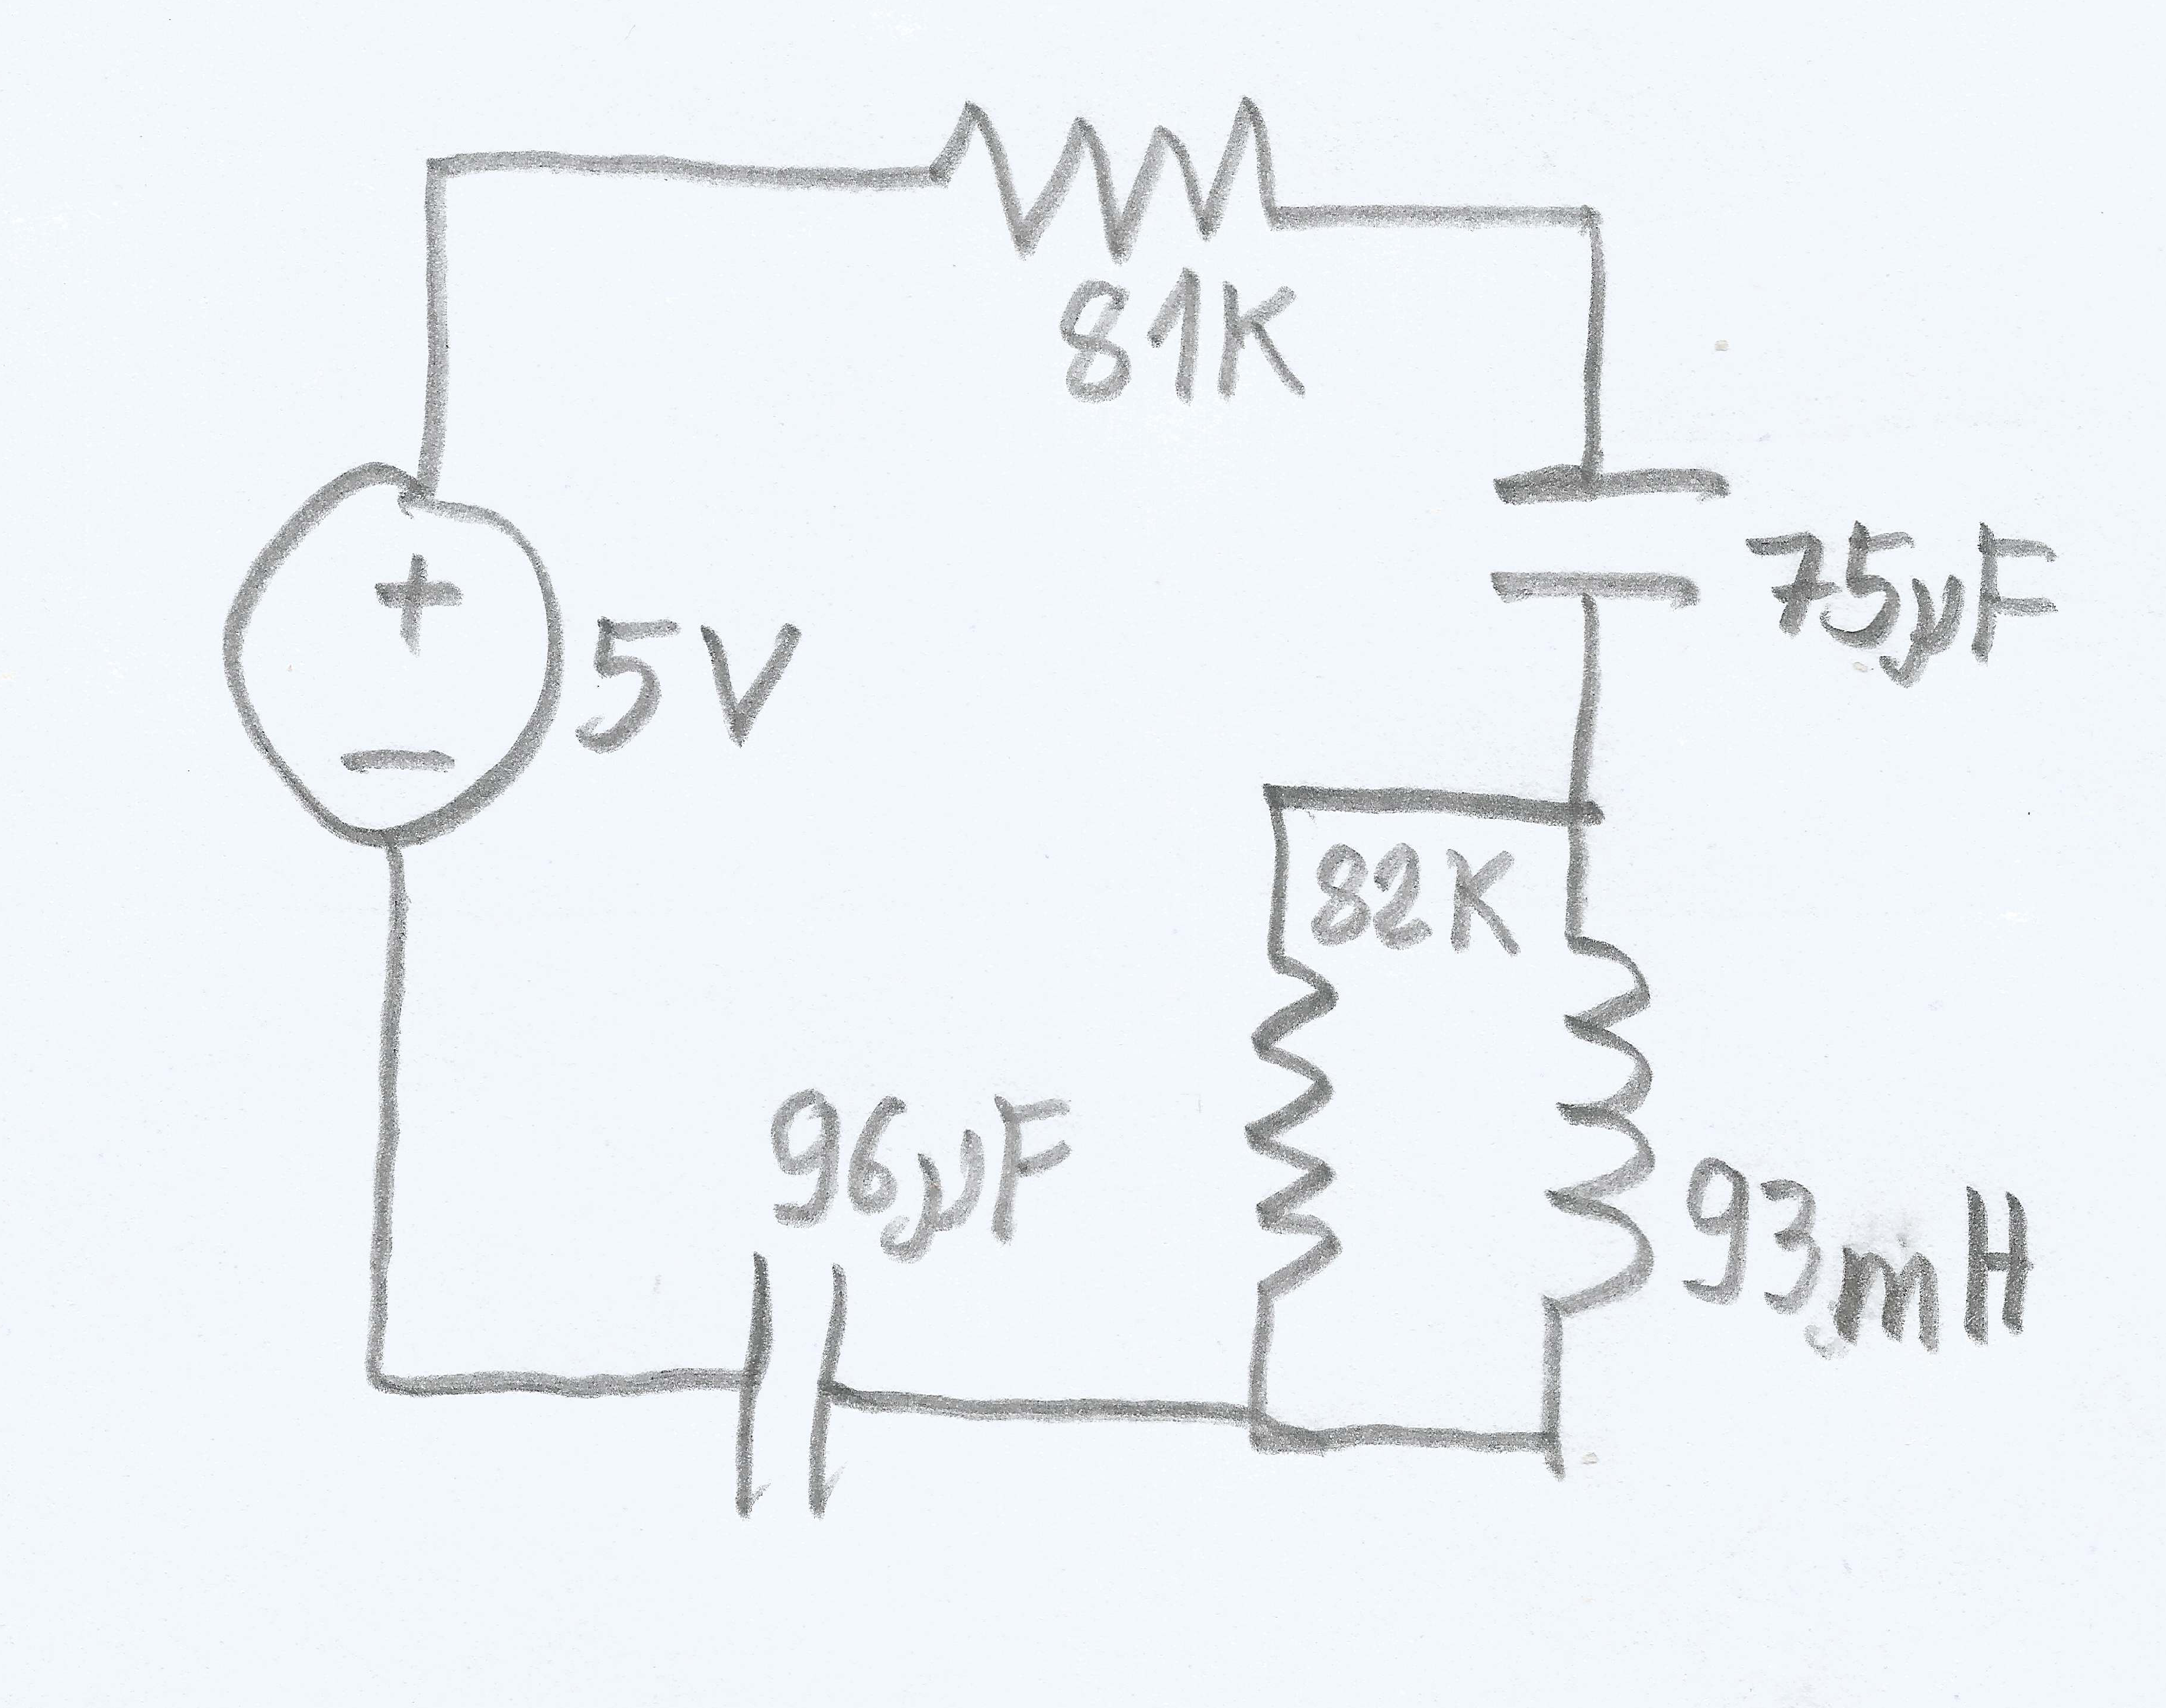 81K
75µF
+
5V
−
82K
96µF
93mH